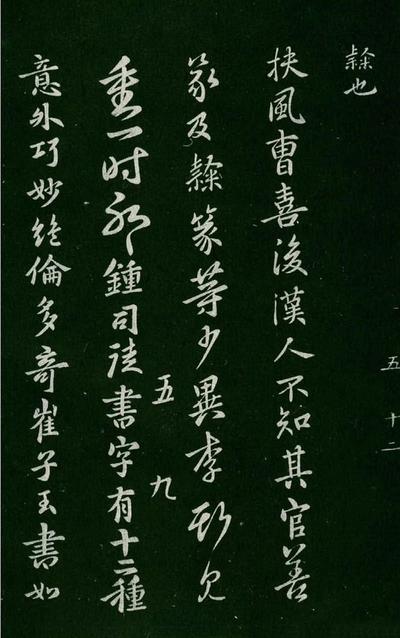 隸也
扶風曹喜後漢人不知其官善
篆及隸篆等少異李斯見
重一时鍾司徒書字有十二種
意外巧妙絶倫多奇崔子玉書如
五十二
五九